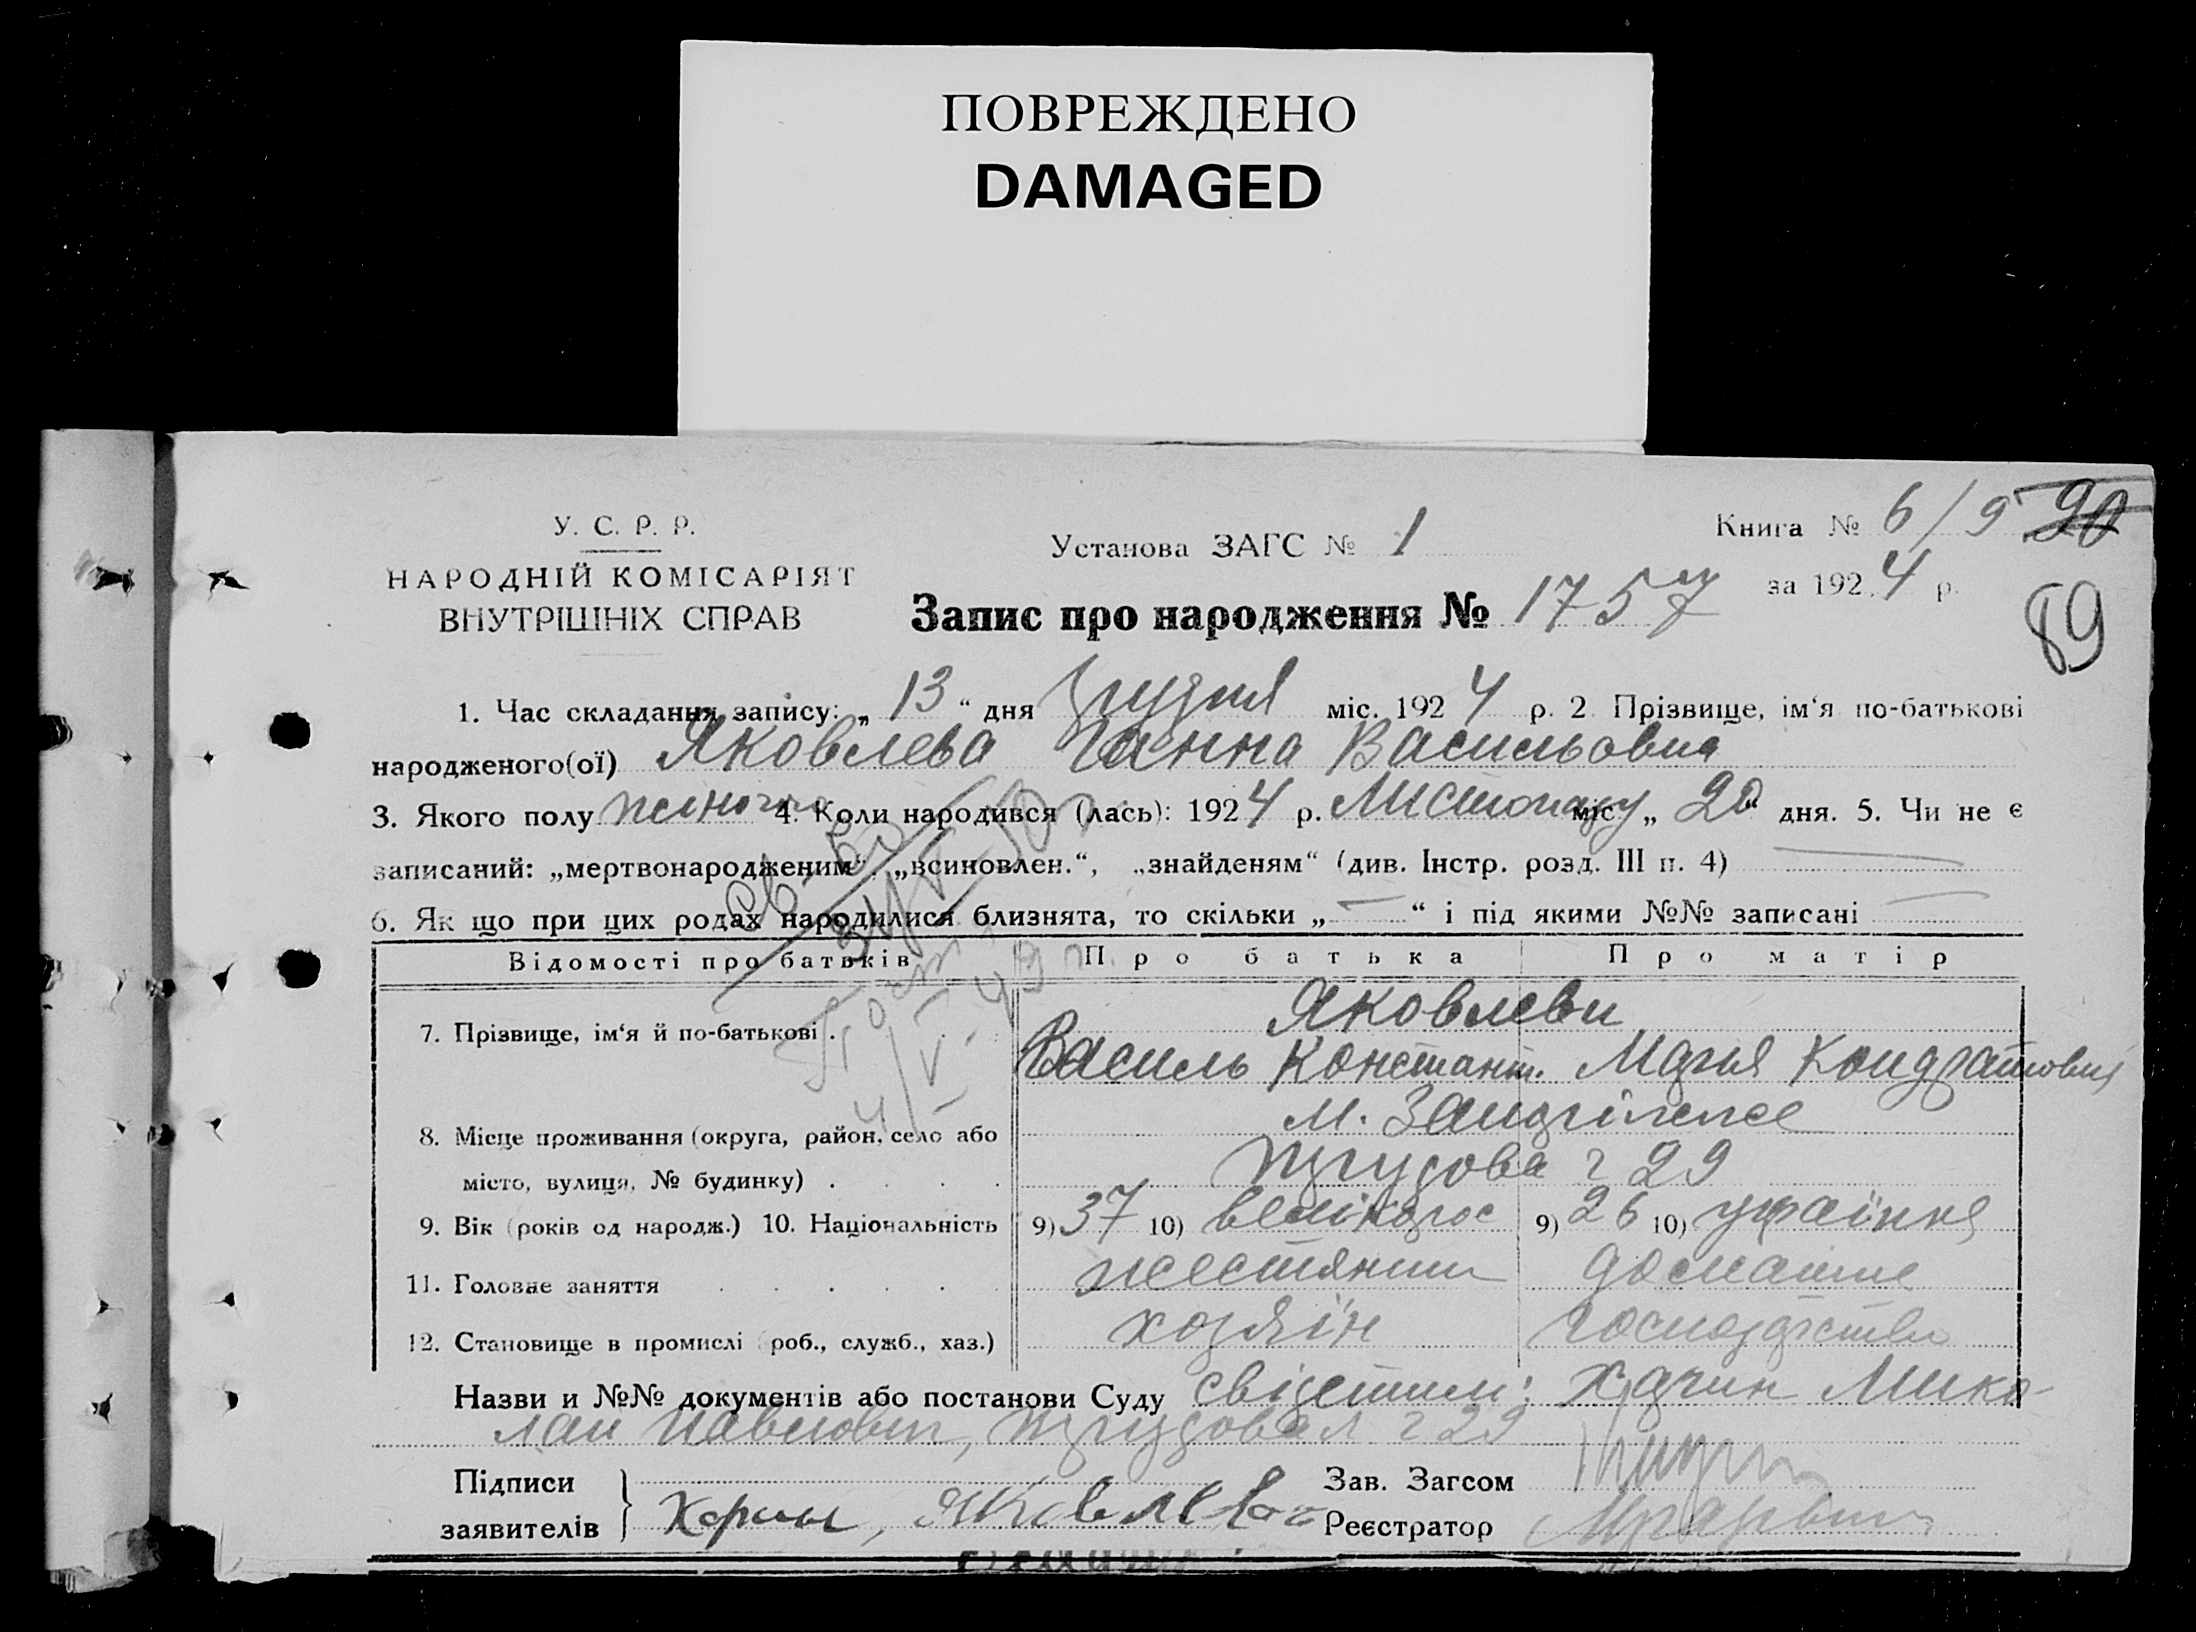 ПОВРЕЖДЕНО
DAMAGED
У. С. Р. Р.
НАРОДНІЙ КОМІСАРІЯТ
ВНУТРІШНІХ СПРАВ
Установа ЗАГС № 1
Книга № 6/9 90
за 1924 р.
89
Запис про народження № 1757
1. Час складання запису: „13“ дня грудня міс. 1924 р. 2. Прізвище, ім'я по-батькові
народженого(ої) Яковлева Ганна Васильовна
3. Якого полу жіночо 4. Коли народився (лась): 1924 р. Листопаду міс. „20“ дня. 5. Чи не є
записаний: „мертвонародженим“, „всиновлен.“, „знайденям“ (див. Інстр. розд. III п. 4) —
6. Як що при цих родах народилися близнята, то скільки „—“ і під якими №№ записані —
Відомості про батьків Про батька Про матір
Яковлеви
7. Прізвище, ім'я й по-батькові . Василь Констант. Марія Кондратовна
8. Місце проживання (округа, район, село або
місто, вулиця, № будинку) . . . . 29
9. Вік (років од народж.) 10. Національність 9) 37 10) великорос 9) 26 10) українка
11. Головне заняття . . . . . жестянщик домашнє
12. Становище в промислі (роб., служб., хаз.) хозяїн господарство
Назви и №№ документів або постанови Суду свідетили: Харин Мико-
лай Павлович, 29
Підписи
заявителів } Харин, Яковлева
Зав. Загсом
Реєстратор